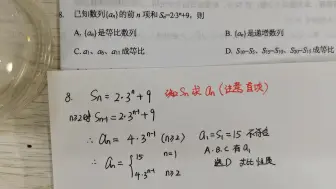 8. 已知数列{aₙ}的前 n 项和 Sₙ=2·3ⁿ+9，则
A. {aₙ}是等比数列 B. {aₙ}是递增数列
C. a₁、a₉、a₁₇成等比 D. S₁₀-S₅、S₁₅-S₁₀、S₂₀-S₁₅成等比
8. Sₙ = 2·3ⁿ+9 Sₙ 求 aₙ (注意首项)
n≥2时 Sₙ₋₁ = 2·3ⁿ⁻¹+9
∴ aₙ = 4·3ⁿ⁻¹ (n≥2) a₁=S₁=15 不符合
A.B.C 有 a₁
∴ aₙ = { 15 n=1
4·3ⁿ⁻¹ n≥2
选D